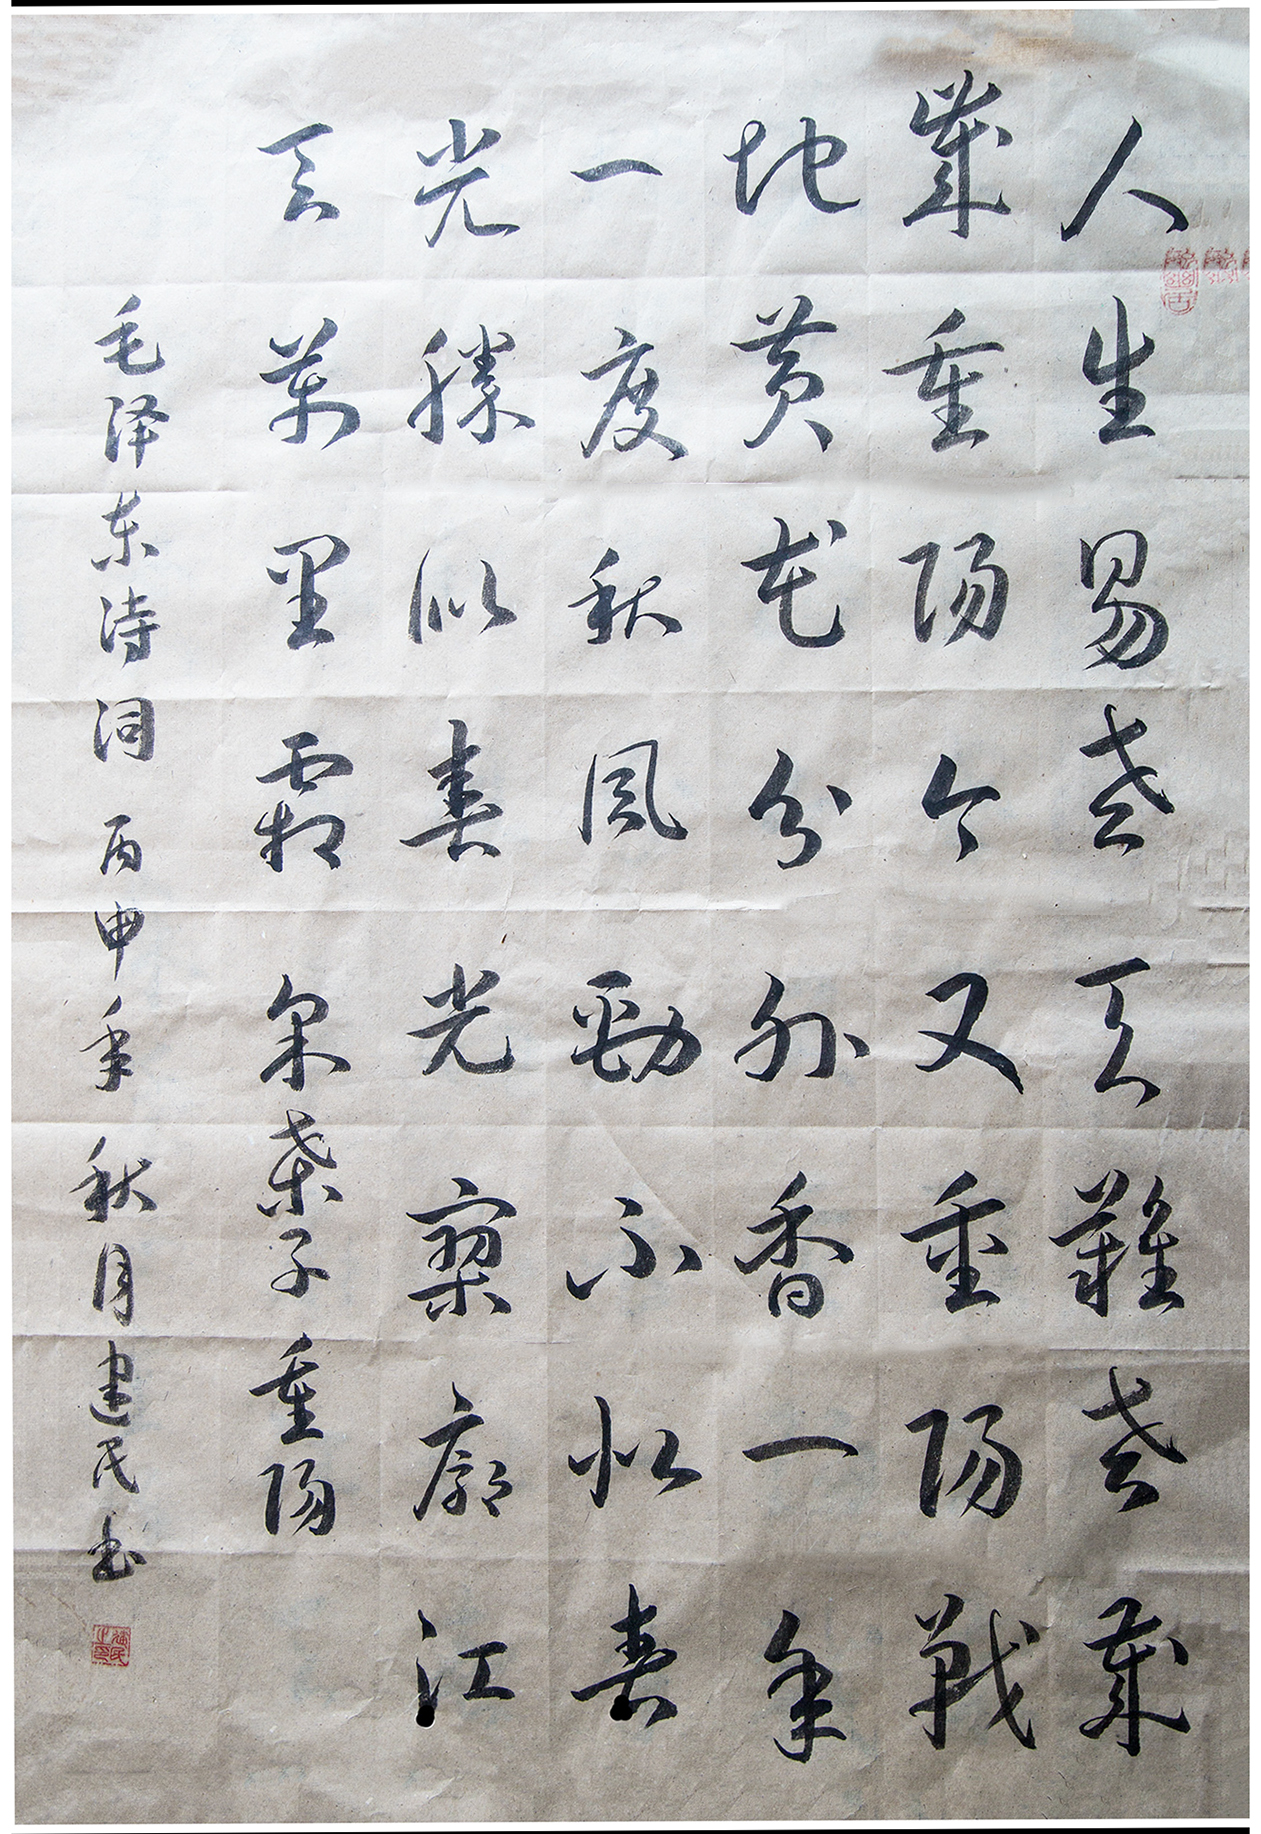 人生易老天難老歲
歲重陽今又重陽戰
地黄花分外香一年
一度秋風勁不似春
光勝似春光寥廓江
天萬里霜 采桑子重陽
毛泽东诗词 丙申年秋月建民书
建民之印